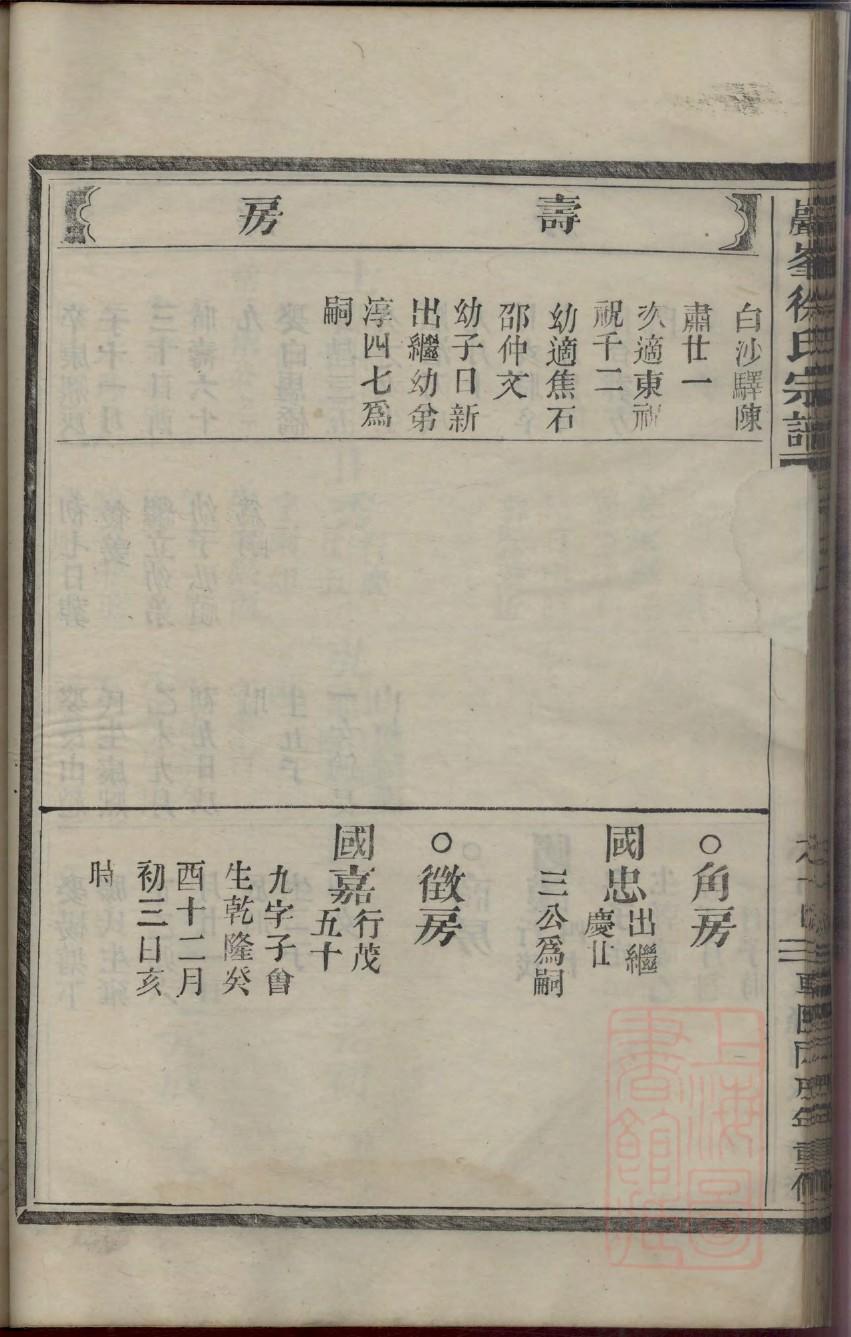 壽房
白沙驛陳
肅廿一
次適東祝
祝千二
幼適焦石
邵仲文
幼子日新
出繼幼弟
淳四七爲
嗣
○角房
國忠出繼
慶廿
三公爲嗣
○徵房
國嘉行茂
五十
九字子會
生乾隆癸
酉十二月
初三日亥
時
巖峯徐氏宗譜
上海圖書館藏